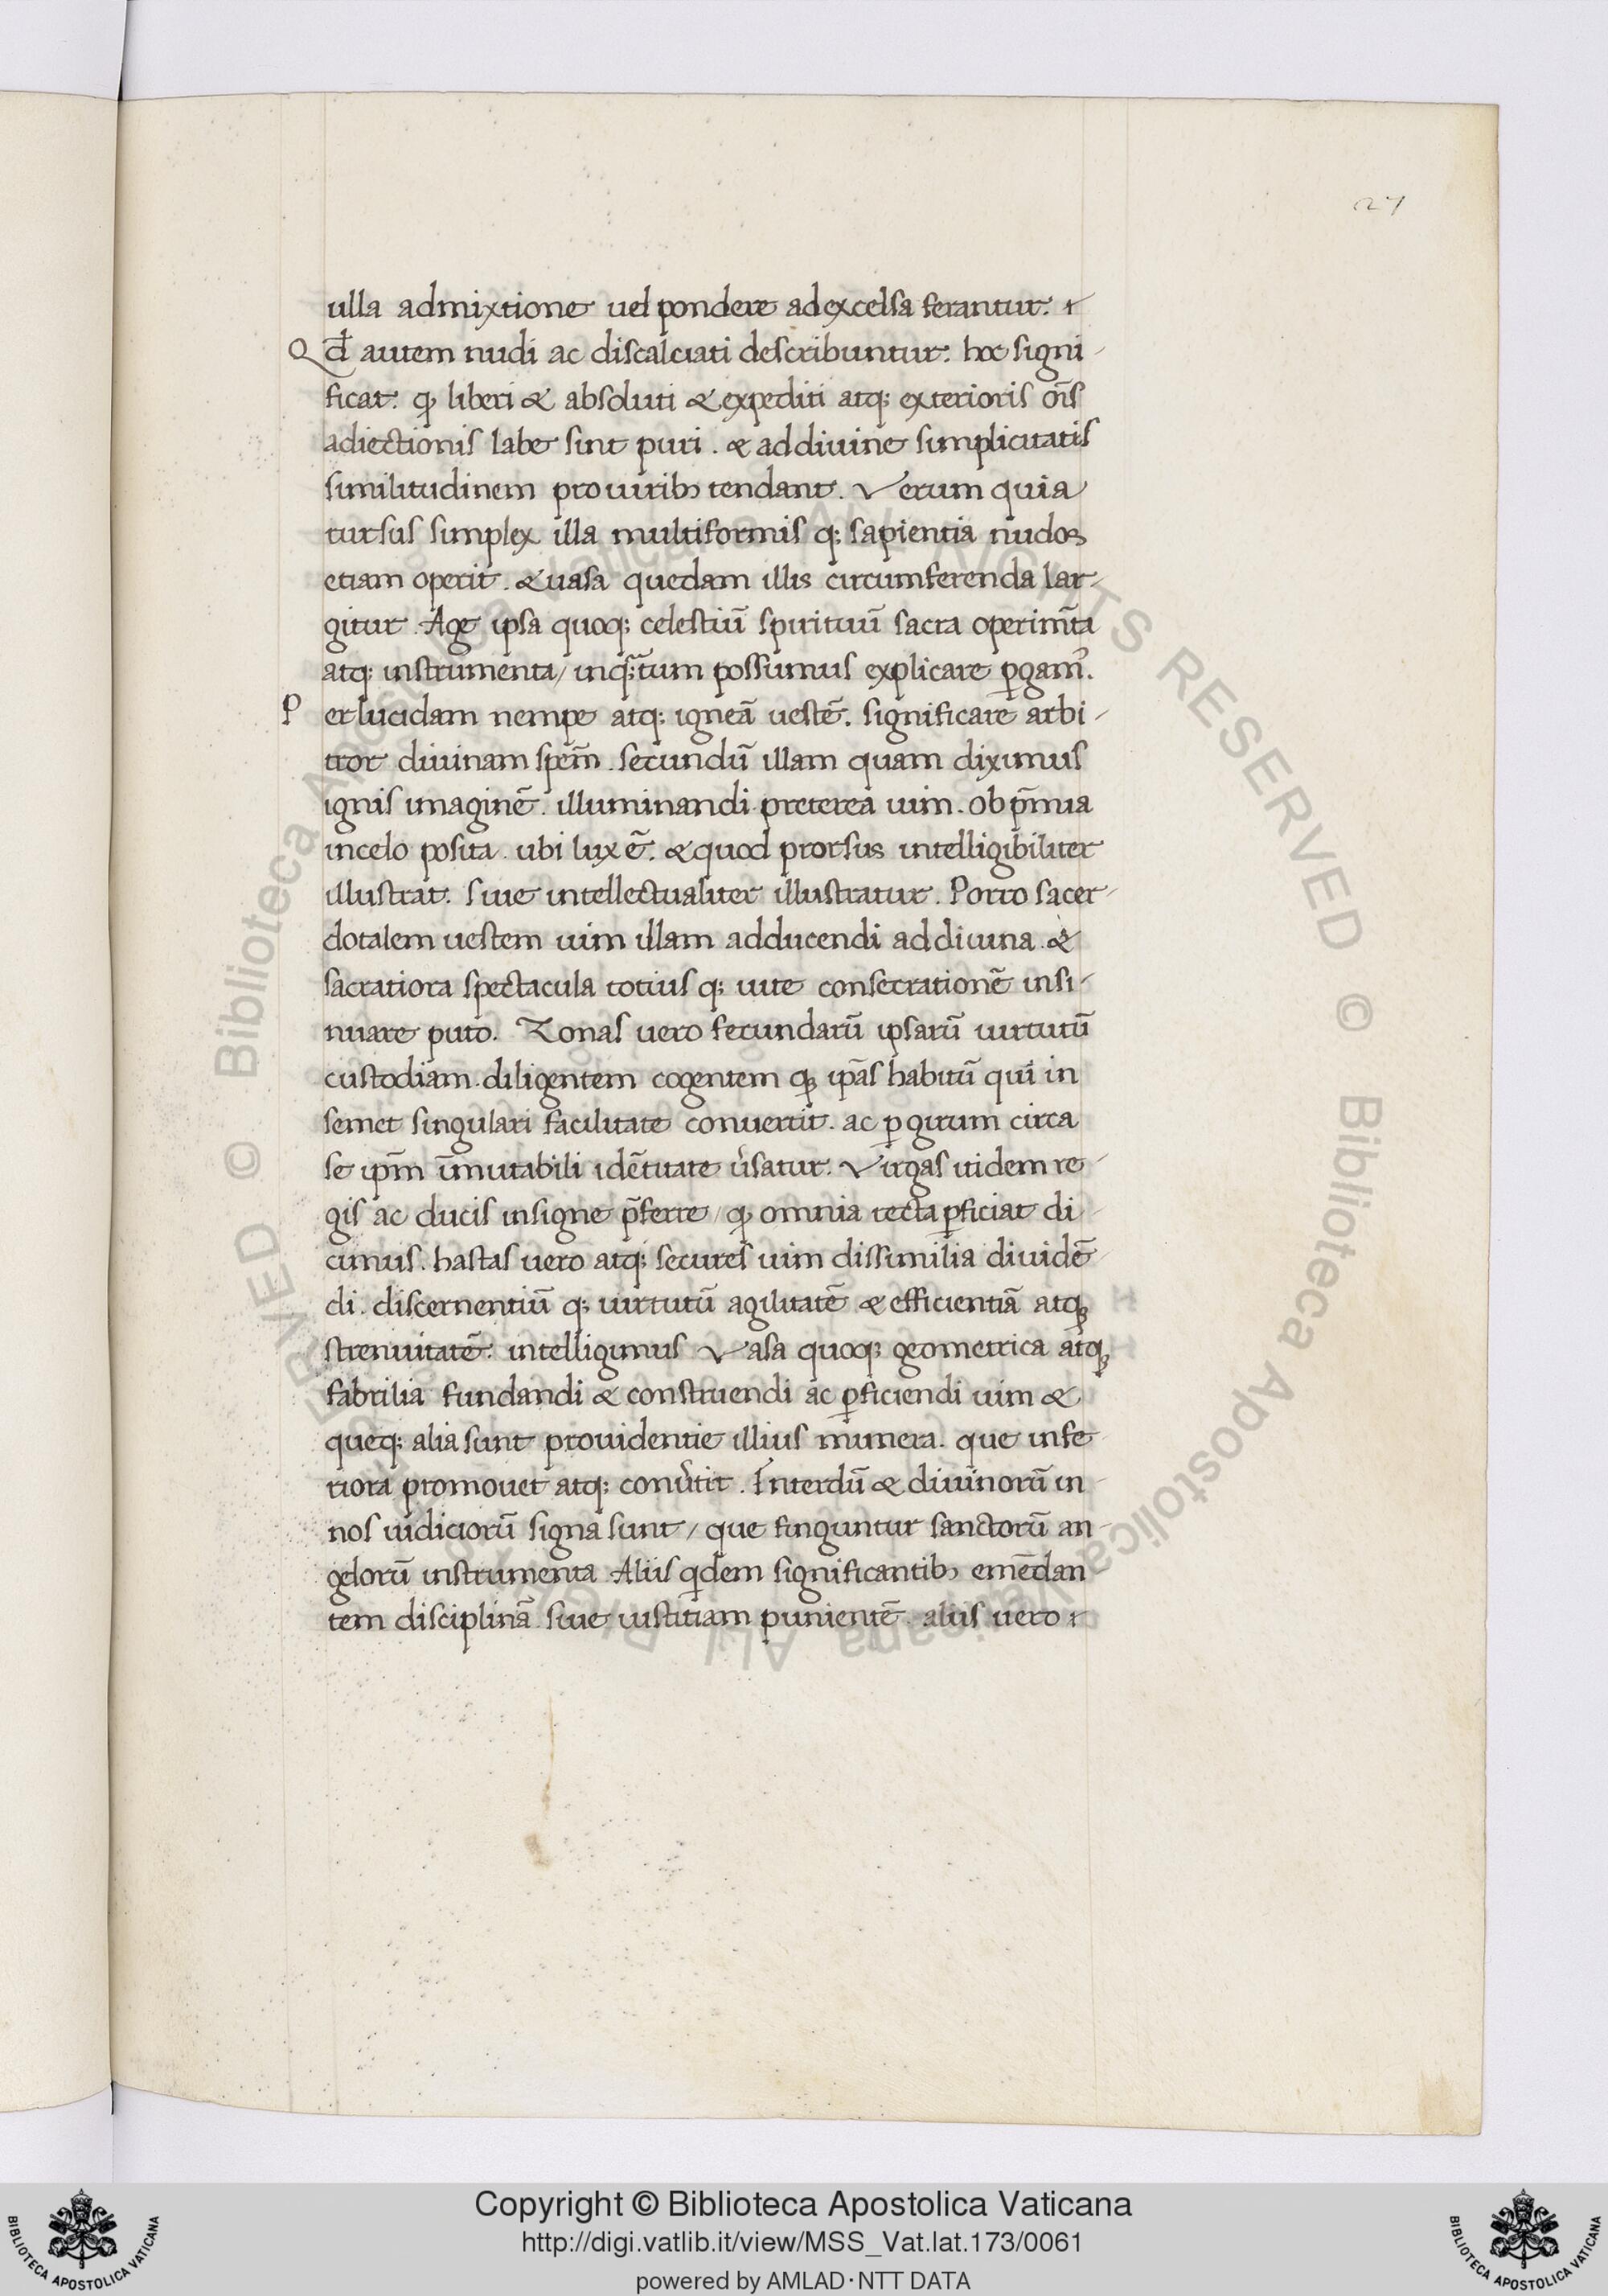 27
ulla admixtione uel pondere ad excelsa ferantur.
Qđ autem nudi ac discalciati describuntur: hoc signi-
ficat: ꝙ liberi & absoluti & expediti atq; exterioris oīs
adiectionis labe sint puri. & ad diuine simplicitatis
similitudinem pro uiribꝫ tendant. Verum quia
rursus simplex illa multiformis q; sapientia nudos
etiam operit. & uasa quedam illis circumferenda lar-
gitur. Age ipsa quoq; celestiū spirituū sacra operim̄ta
atq; instrumenta/ inq̄;tum possumus explicare ꝑgam᷒.
Perlucidam nempe atq; igneā uestē. significare arbi-
tror diuinam spēm. secundū illam quam diximus
ignis imaginē. illuminandi preterea uim. ob p̄mia
in celo posita. ubi lux ē. & quod prorsus intelligibiliter
illustrat. siue intellectualiter illustratur. Porro sacer-
dotalem uestem uim illam adducendi ad diuina. &
sacratiora spectacula totius q; uite consecrationē insi-
nuare puto. Zonas uero fecundarū ipsarū uirtutū
custodiam. diligentem cogentem q; ip̄as habitū qui in
semet singulari facilitate conuertit. ac ꝑ girum circa
se ip̄m īmutabili idētitate u̓satur. Virgas itidem re-
gis ac ducis insigne p̄ferre/ ꝙ omnia recta ꝑficiat di-
cimus. hastas uero atq; secures uim dissimilia diuidē-
di. discernentiū q; uirtutū agilitatē & efficientiā atq;
strenuitatē: intelligimus Vasa quoq; geometrica atq;
fabrilia fundandi & construendi ac ꝑficiendi uim &
queq; alia sunt prouidentie illius munera. que infe-
riora promouet atq; conu̓tit. Interdū & diuinorū in
nos iudiciorū signa sunt/ que finguntur sanctorū an-
gelorū instrumenta Aliis qdem significantibꝫ emēdan
tem disciplinā siue iustitiam punientē. aliis uero
© Biblioteca Apostolica Vaticana ALL RIGHTS RESERVED © Biblioteca Apostolica Vaticana ALL RIGHTS RESERVED
Copyright © Biblioteca Apostolica Vaticana
http://digi.vatlib.it/view/MSS_Vat.lat.173/0061
powered by AMLAD·NTT DATA
BIBLIOTECA APOSTOLICA VATICANA
BIBLIOTECA APOSTOLICA VATICANA